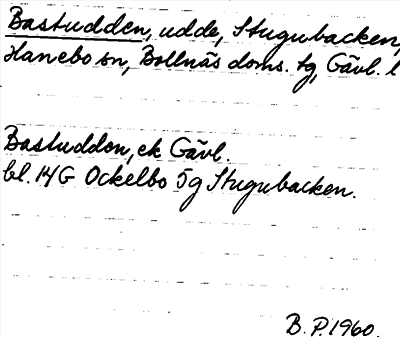 Bastudden, udde, Stugubacken,
Hanebo sn, Bollnäs doms. tg, Gävl. l
Bastuddon, ek Gävl.
bl. 14G Ockelbo 5g Stugubacken.
B. P. 1960.